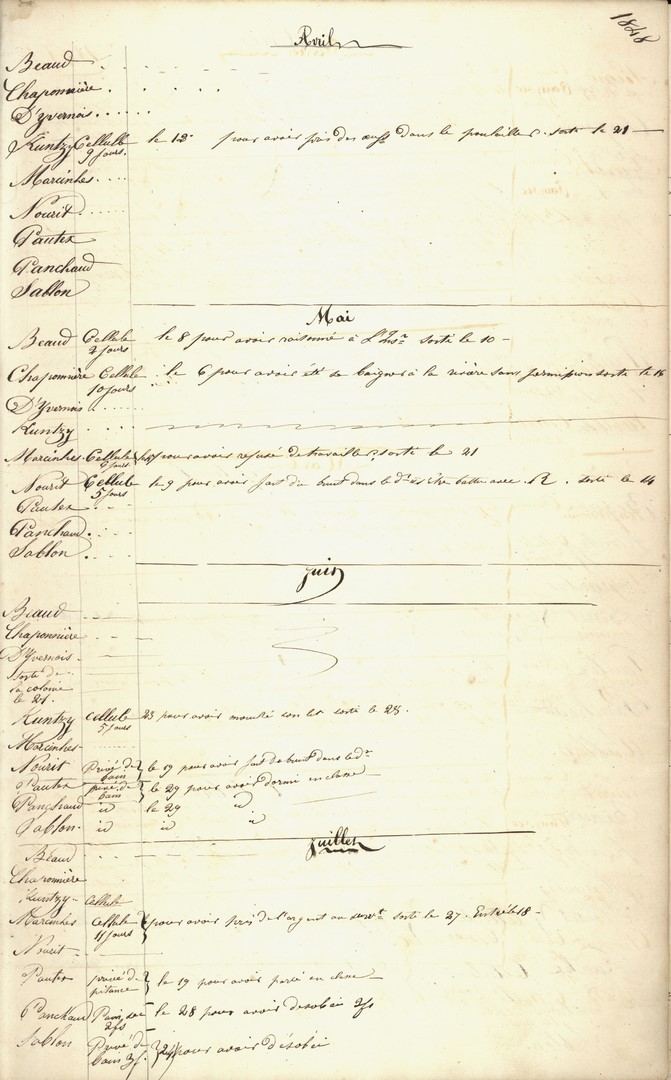 1848
Avril
Beaud
Chaponnière
D'Yvernois
Kuntzy Cellule 9 jours. le 12 pour avoir pris des œufs dans le poulailler. sorti le 21
Marcinhes
Nourit
Pautex
Panchaud
Sablon
Mai
Beaud Cellule 2 jours le 8 pour avoir raisonné à sorti le 10
Chaponnière Cellule 10 jours le 6 pour avoir été se baigner à la rivière sans permission sorti le 16
D'Yvernois
Kuntzy
Marcinhes Cellule jours pour avoir refusé de travailler, sorti le 21
Nourit Cellule 5 jours le 9 pour avoir fait du bruit dans le battu avec R. sorti le 14
Pautex
Panchaud
Sablon
Juin
Beaud
Chaponnière
D'Yvernois
sorti de
la colonie
le 21.
Kuntzy Cellule 5 jours 23 pour avoir mouillé son lit sorti le 28.
Marcinhes
Nourit Privé de bain le 19 pour avoir fait du bruit dans le dr
Pautex privé de bain le 29 pour avoir dormi en classe
Panchaud id le 29 id
Sablon. id id id
Juillet
Beaud
Chaponnière
Kuntzy Cellule
Marcinhes Cellule 11 jours pour avoir pris de l'argent au sorti le 27. Entré le 18
Nourit
Pautex privé de pitance le 19 pour avoir parlé en classe
Panchaud Pain sec 2 fs le 28 pour avoir désobéi 2 fs
Sablon Privé de bain 3 f. 24 pour avoir désobéi